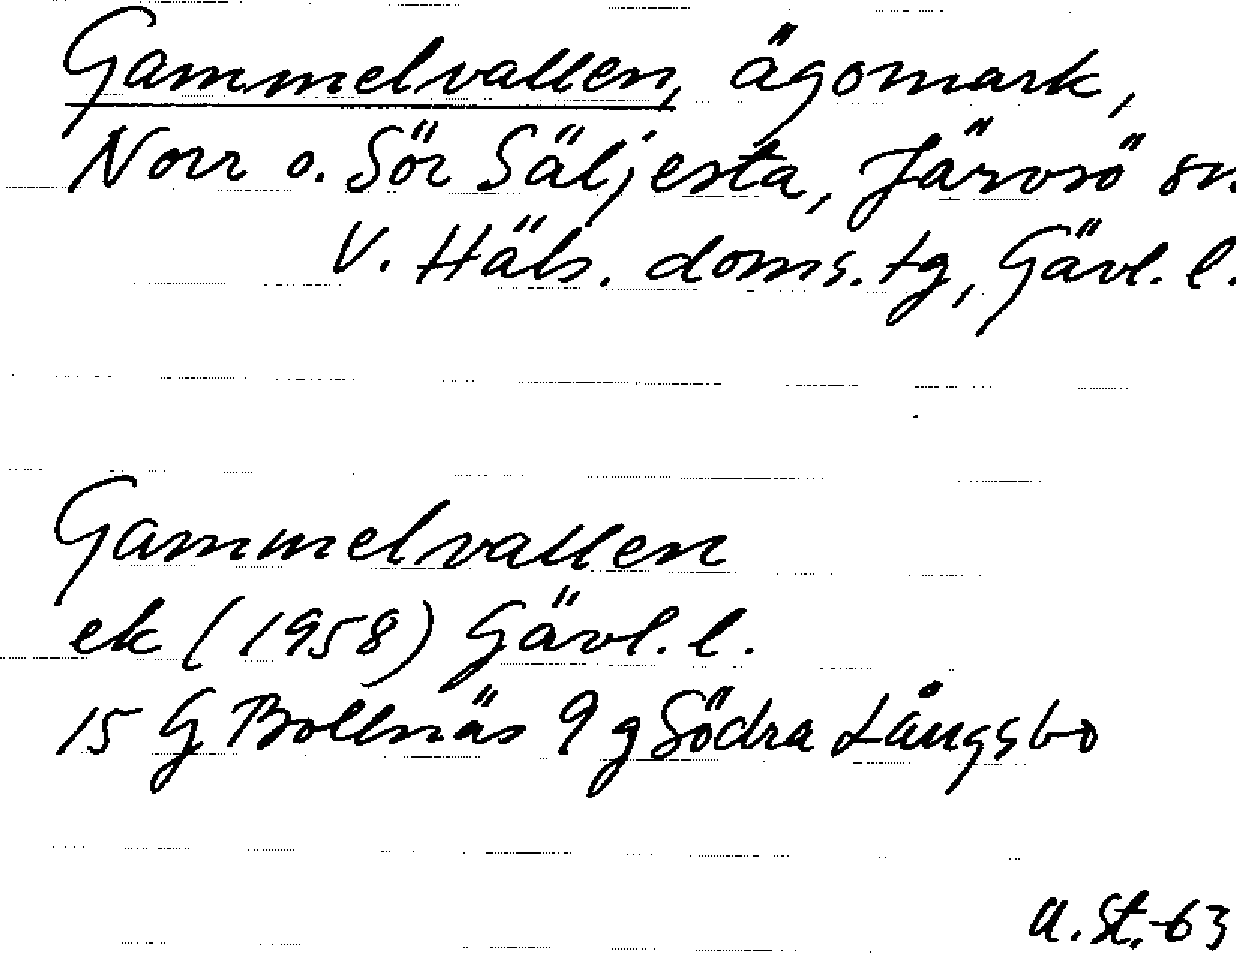 Gammelvallen, ägomark,
Norr o. Sör Säljesta, Järvsö sn.
V. Häls. doms. tg, Gävl. l.
Gammelvallen
ek (1958) Gävl. l.
15 G Bollnäs 9 g Södra Långsbo
A. St. -63